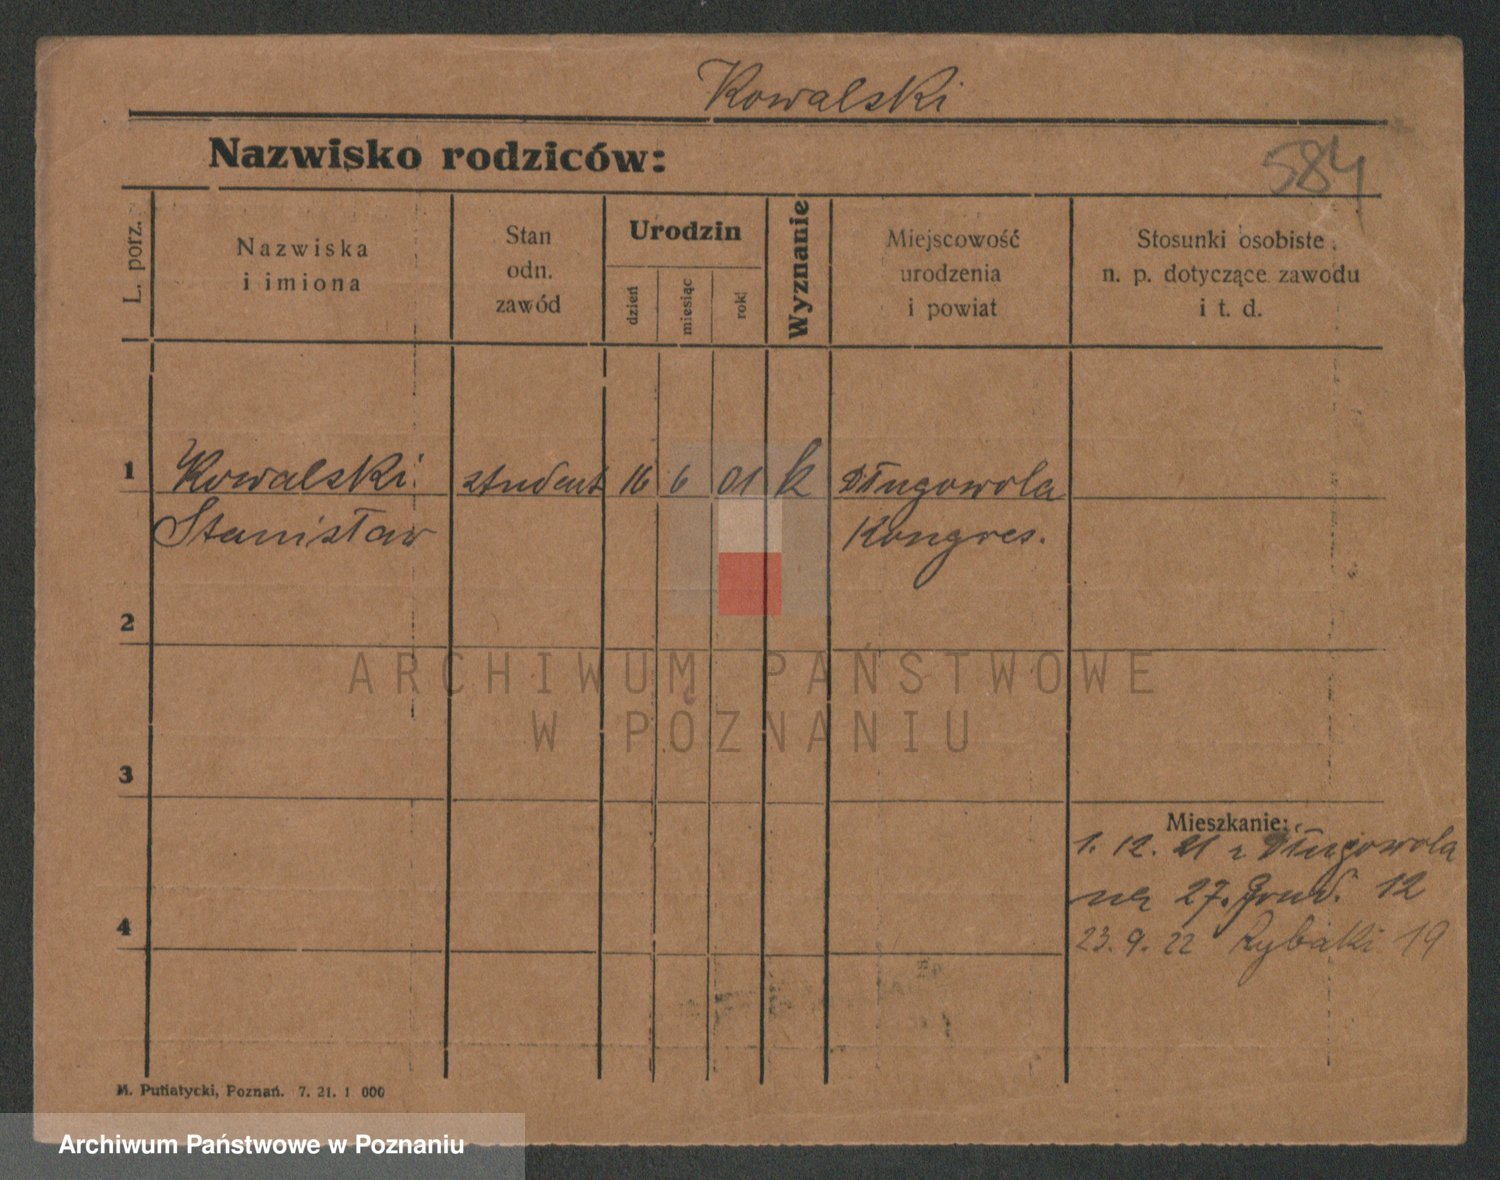 Kowalski
Nazwisko rodziców:
584
L. porz.
Nazwiska
i imiona
Stan
odn.
zawód
Urodzin
dzień
miesiąc
rok
Wyznanie
Miejscowość
urodzenia
i powiat
Stosunki osobiste
n. p. dotyczące zawodu
i t. d.
1 Kowalski student 16 6 01 k Długowola
Stanisław Kongres.
2
ARCHIWUM PAŃSTWOWE
W POZNANIU
3
Mieszkanie:
1. 12. 21 z Długowola
27. Grud. 12
4
23. 9. 22 Rybaki 19
M. Putiatycki, Poznań. 7. 21. 1 000
Archiwum Państwowe w Poznaniu